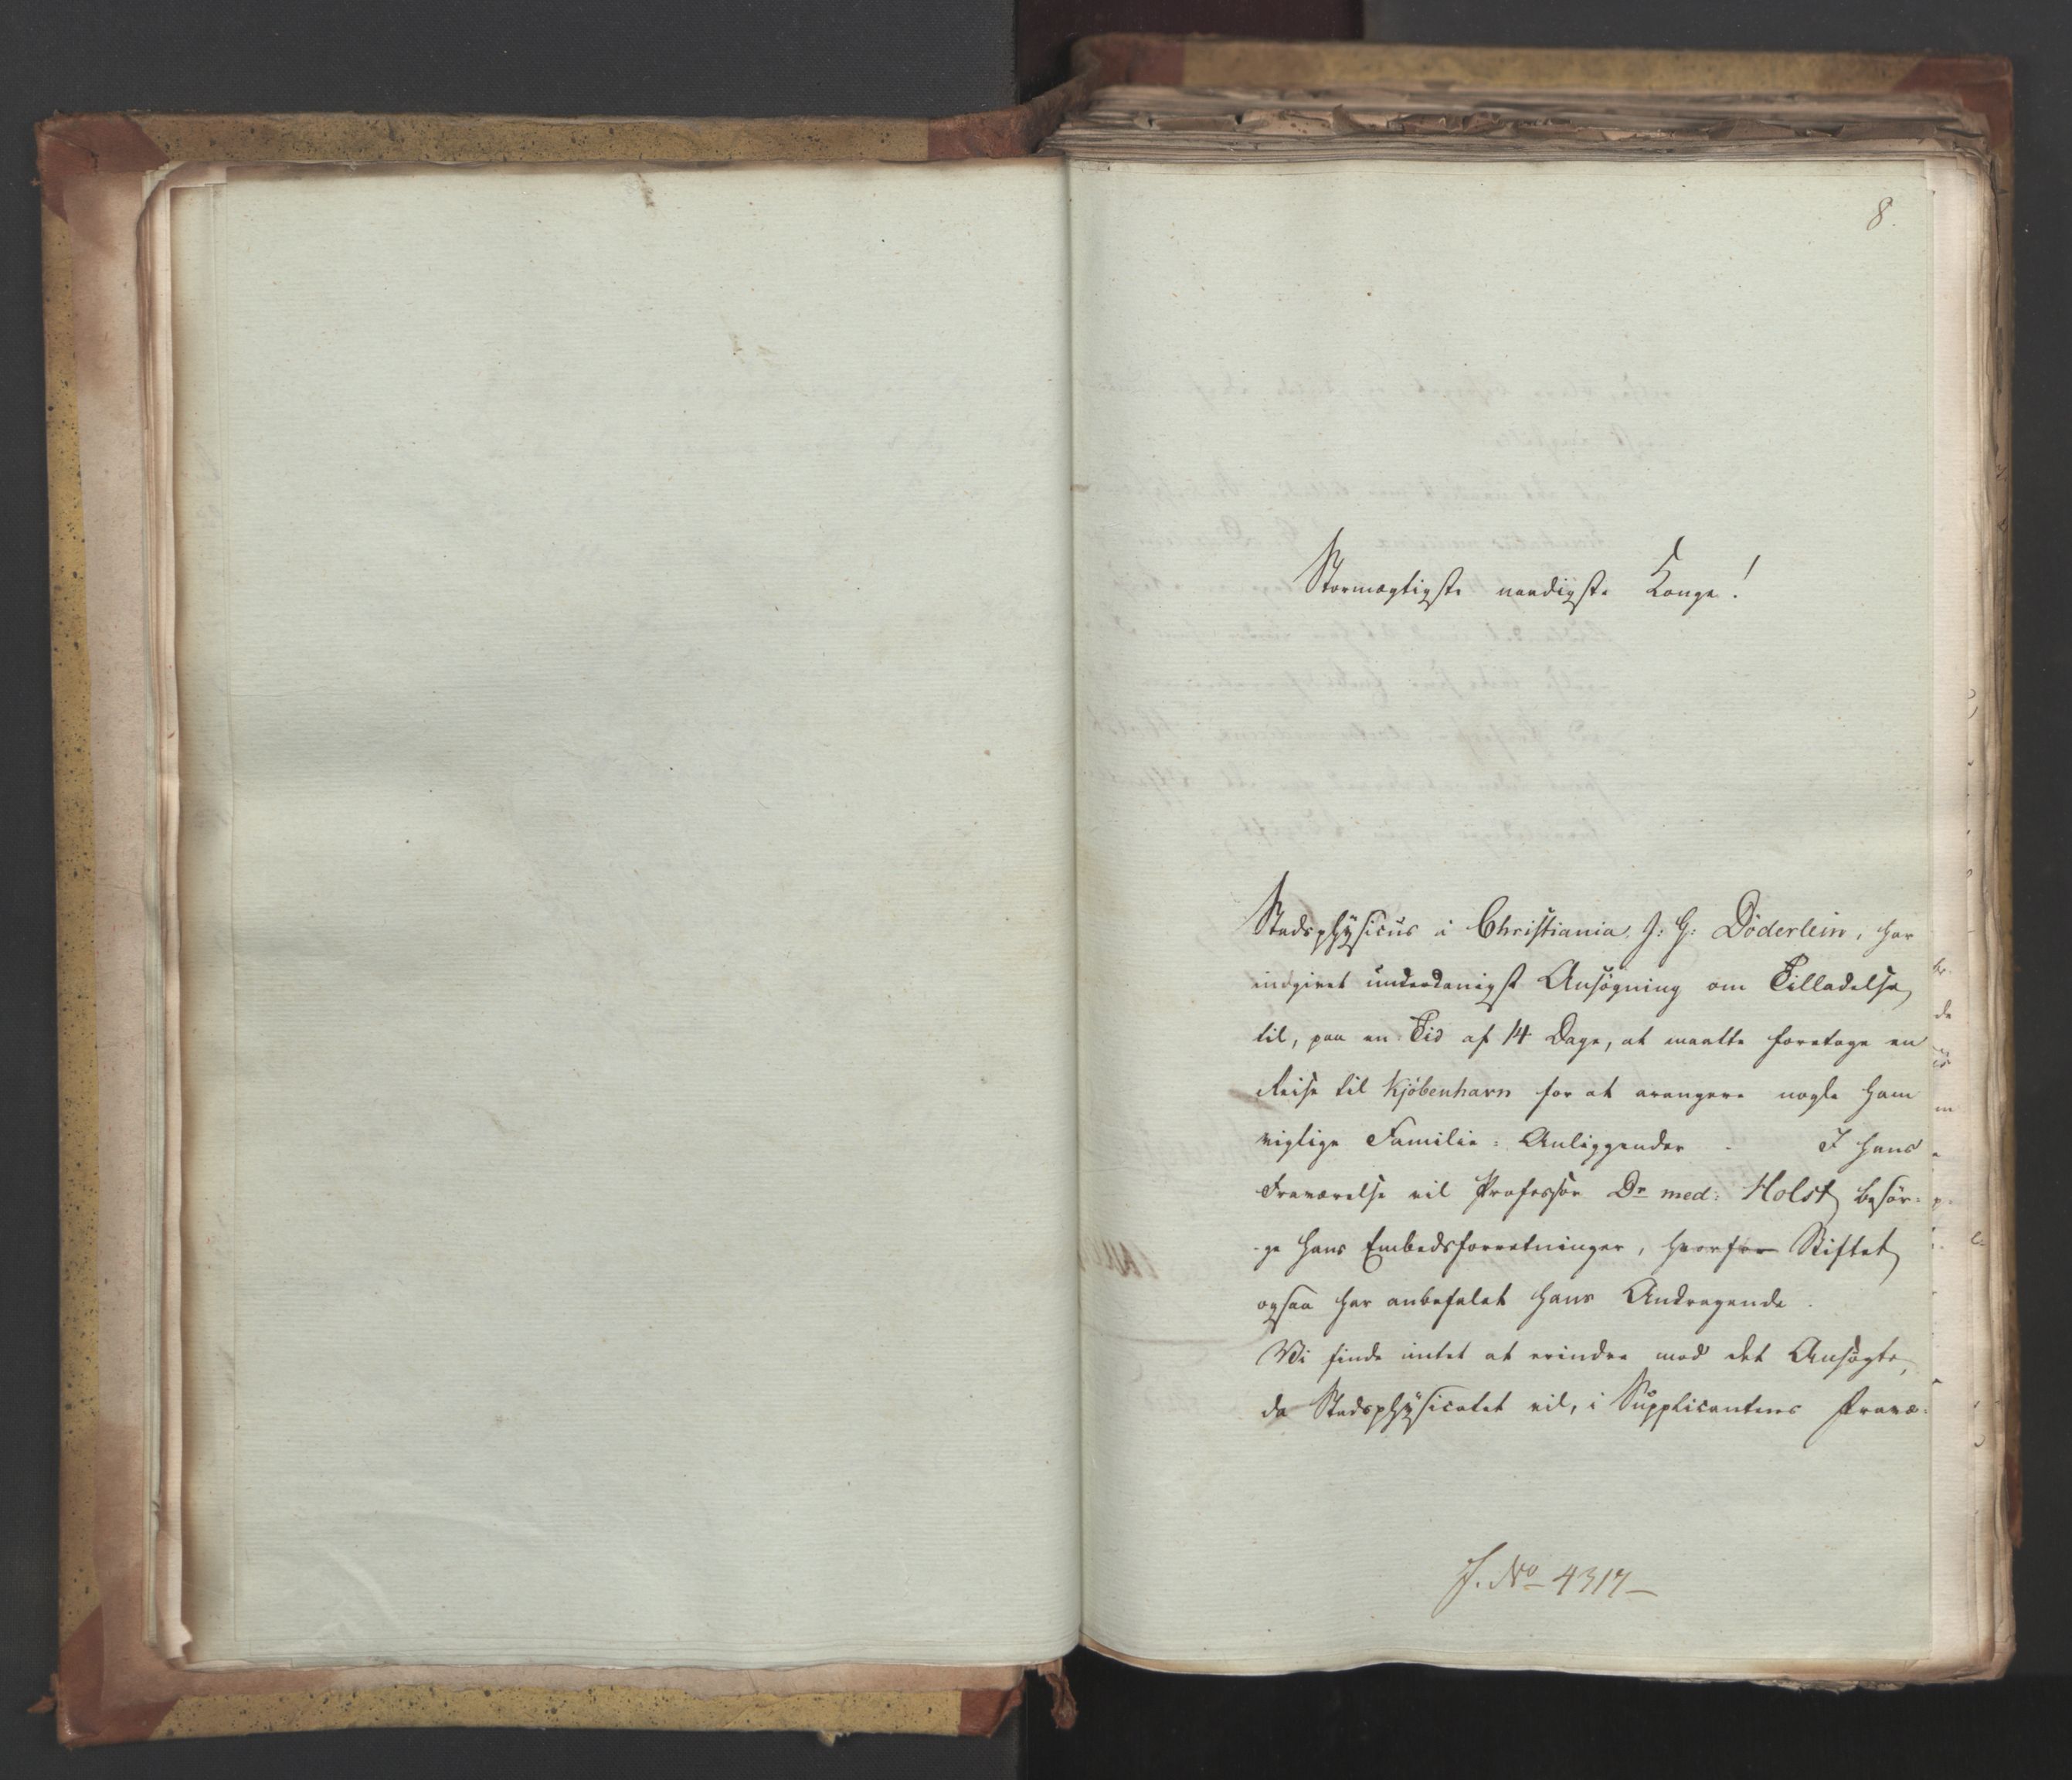 8.
Stormægtigste naadigste Konge!
Stadsphÿsicus i Christiania, J: G: Döderlein, har
indgivet underdanigst Ansøgning om Tilladelse
til, paa en Tid af 14 Dage, at maatte foretage en
Reise til Kjöbenhavn for at arangere nogle ham
vigtige Familie-Anliggender. I hans
Fraværelse vil Professor Dr med: Holst besör-
ge hans Embedsforretninger, hvorfor Stiftet
ogsaa har anbefalet hans Andragende.
Vi finde intet at erindre mod det Ansøgte,
da Stadsphÿsicatet vil, i Supplicantens Fravæ-
J. No 4317